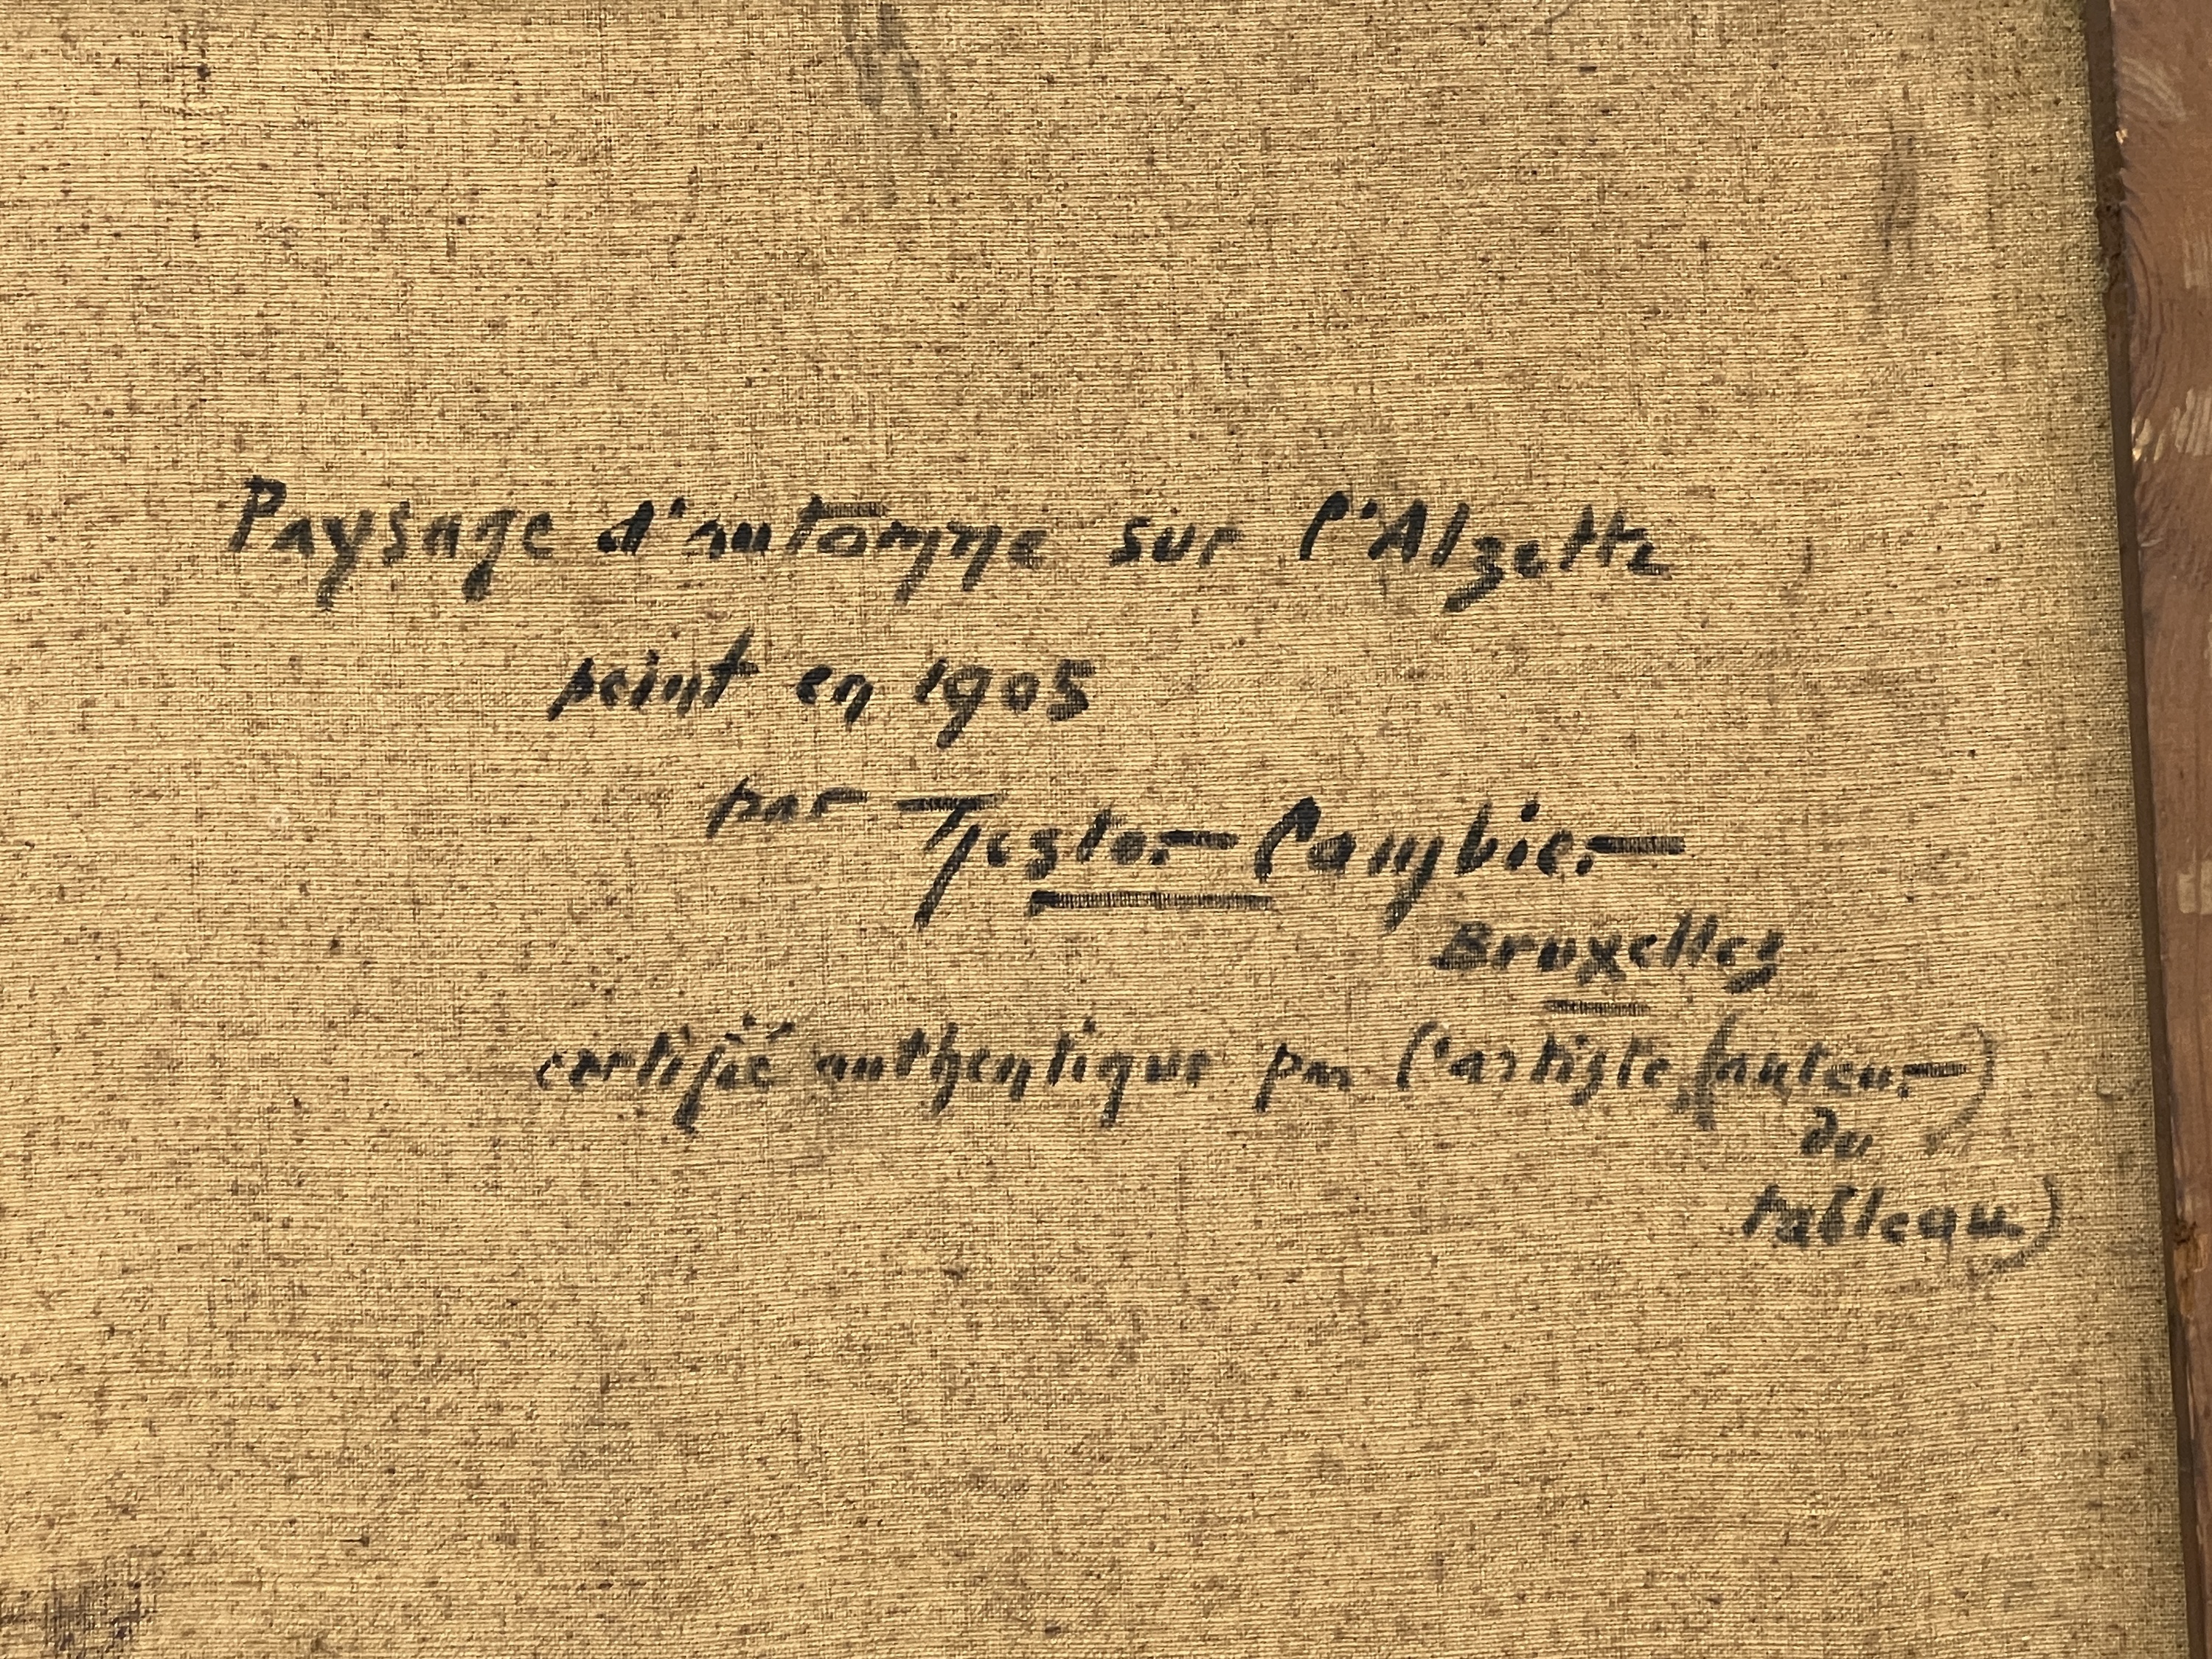 Paysage d'automne sur l'Alzette
peint en 1905
par Nestor Cambier
Bruxelles
certifié authentique par l'artiste (auteur)
du
tableau)